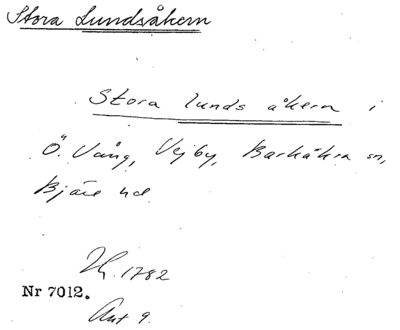 Stora Lundsåkern
Stora lunds åkern i
Ö. Vång, Vejby, Barkåkra sn,
Bjäre hd
1782
Nr 7012.
Akt 9.